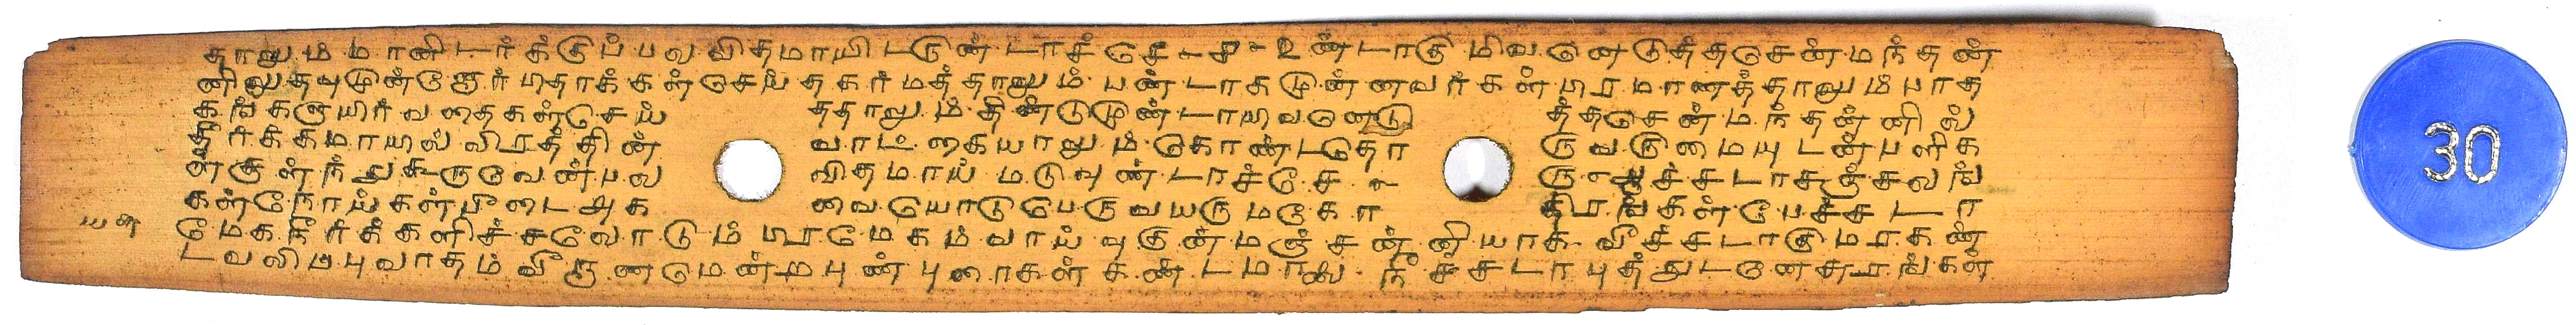 தாலு ம் மானிடர்க்குப் பலவிதமாயிடருண்டாச்சே உண்டாகு மிவனெடுத்தசென்மந்தன்
னிலுதவுமுன்னோர் தொக்கள்செய் தகர்மத்தாலும் பண்டாகமுன்னவர்கள் பிரமாணத்தாலும் பாத
கங்களுயிர் வதைகள்செய் ததாலும் திண்டுமுண்டாயிவனெடு த்தசென்மந்தன்னில்
தீர்க்கமாயல்விரத்தின் வாட்டகையாலும் கொண்டதோ ருவகுமையுடன்பளிக
ள்குன்ந்து கருவேண்பல விதமாய் மடுவுண்டாச்சே ச்சடாசஞ்சலங்
கள்நோய்கள்பீடைஅக வையோடுபெருவயருமகோ திரங்கள்பேச்சடா
மேகநீர்க்களிச்சலோடும் பிரமேகம்வாய்வுகுன்மஞ்சன்னியாக வீச்சடாகுமரகண்
டவலிம்புவாதம்வீஞணமென்றபுண்புரைகள்கண்டமாலை நீச்சடாபுத்துடனேசுரங்கள்
30